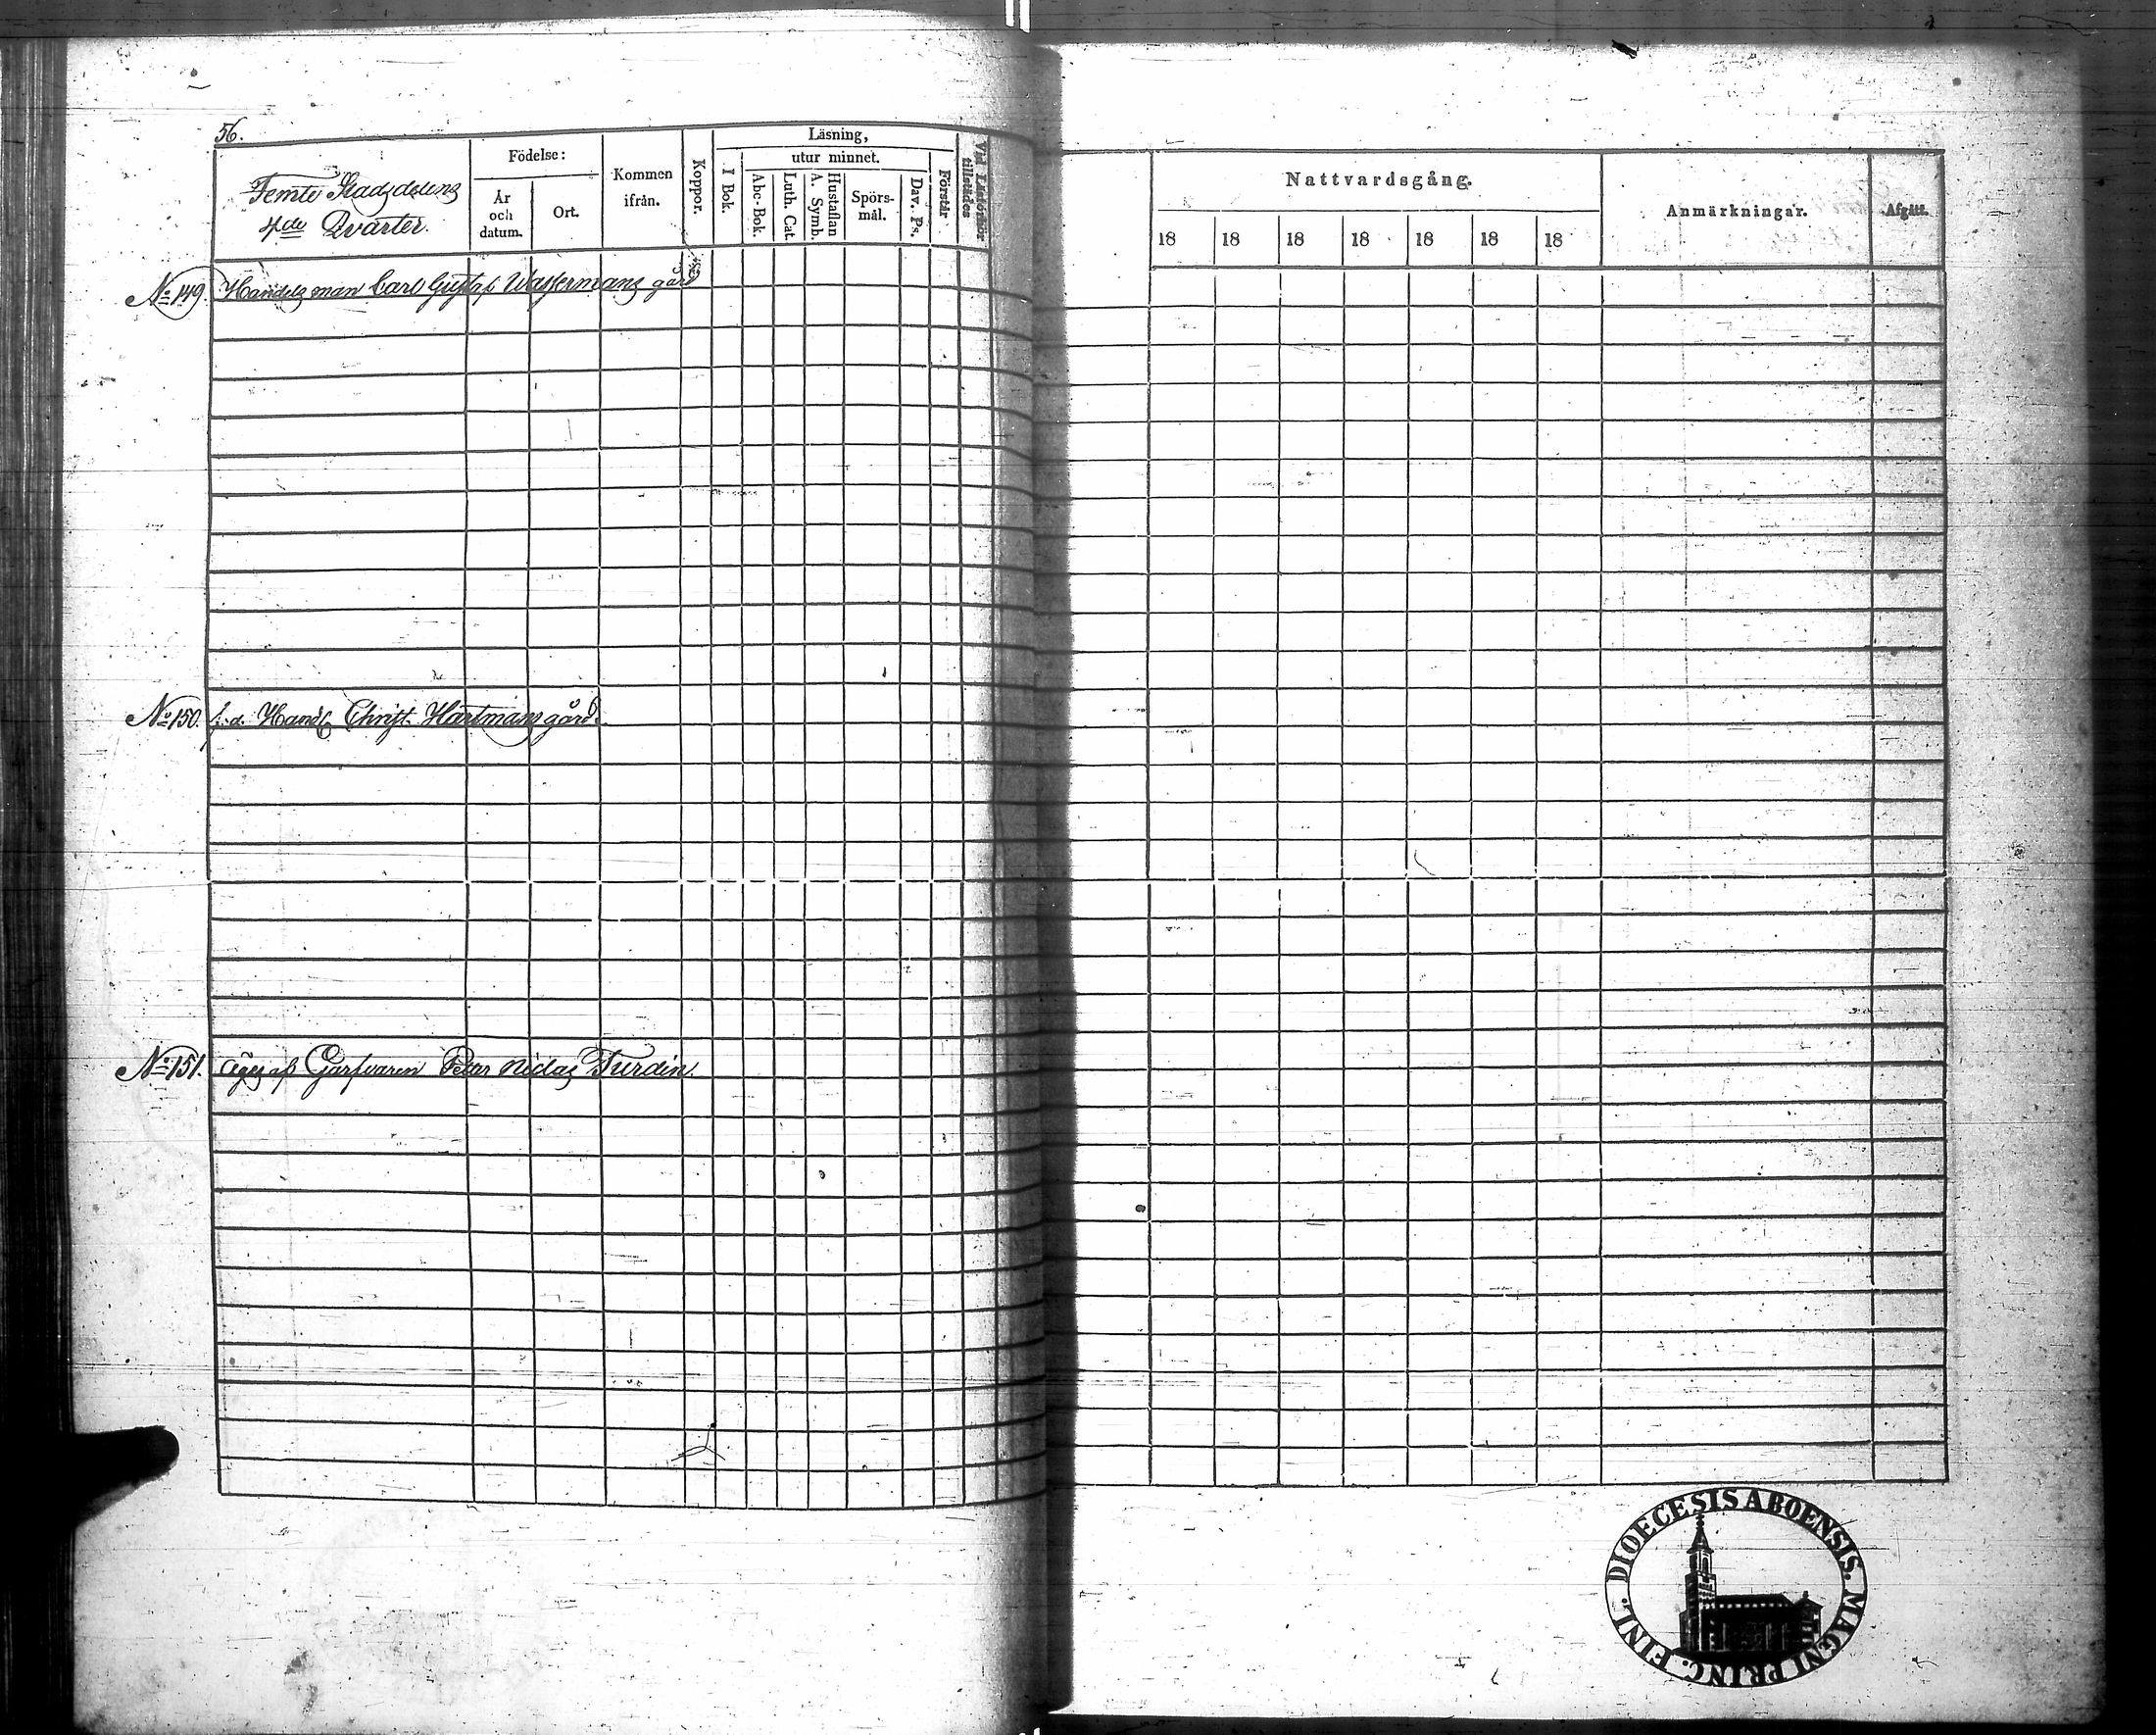 56.
Femte Stadsdelens
4de Qvarter.
Födelse:
År
och
datum.
Ort.
Kommen
ifrån.
Koppor.
Läsning,
I Bok.
utur minnet.
Abc-Bok.
Luth. Cat.
Hustaflan
A. Symb.
Spörs-
mål.
Dav. Ps.
Förstår
Vid Läsförhör
tillstädes
Nattvardsgång.
18 18 18 18 18 18 18
Anmärkningar.
Afgått.
No 149. Handelsman Carl Gustaf Wassermans gård
No 150. f.d. Handl Christ. Hartmans gård.
No 151. Äges af Garfvaren Petter Niclas Turdin.
DIOECESIS ABOENSIS. MAGNI PRINC. FINL.